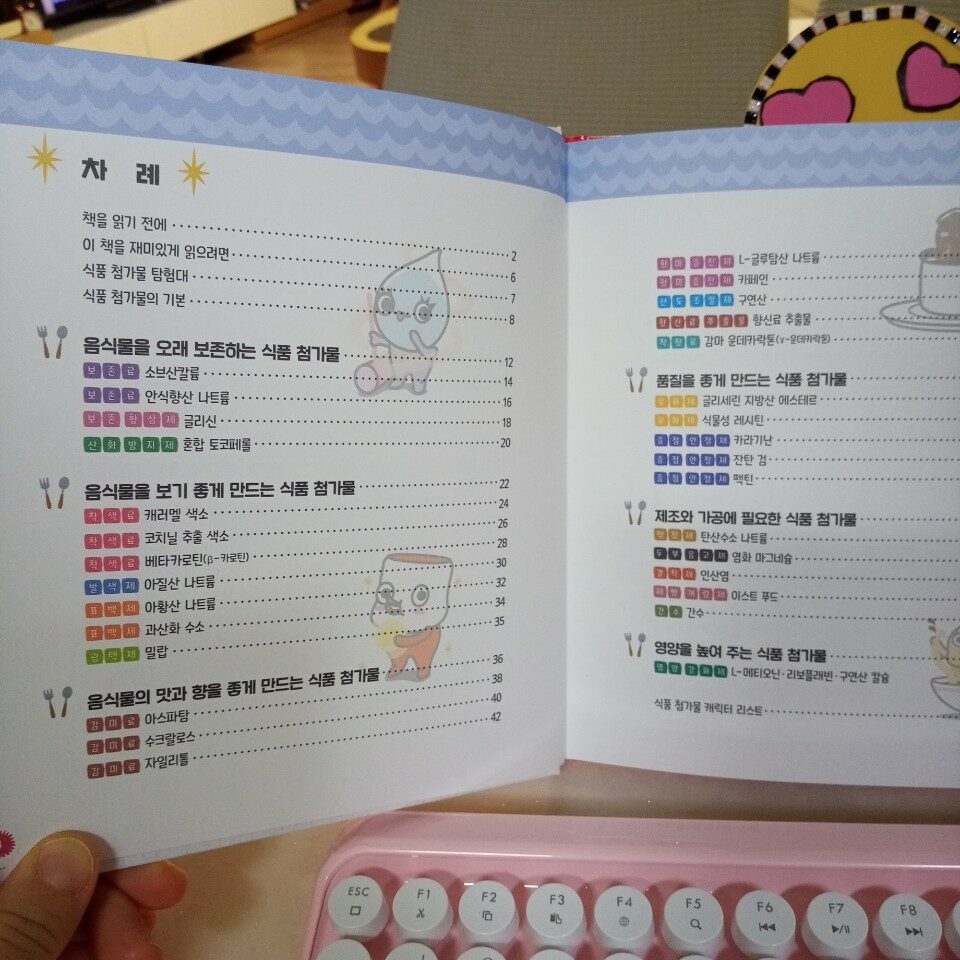 차 례
책을 읽기 전에 2
이 책을 재미있게 읽으려면 6
식품 첨가물 탐험대 7
식품 첨가물의 기본 8
음식물을 오래 보존하는 식품 첨가물 12
보존료 소브산칼륨 14
보존료 안식향산 나트륨 16
보존향상제 글리신 18
산화방지제 혼합 토코페롤 20
음식물을 보기 좋게 만드는 식품 첨가물 22
착색료 캐러멜 색소 24
착색료 코치닐 추출 색소 26
착색료 베타카로틴(β-카로틴) 28
발색제 아질산 나트륨 30
표백제 아황산 나트륨 32
표백제 과산화 수소 34
광택제 밀랍 35
음식물의 맛과 향을 좋게 만드는 식품 첨가물 36
감미료 아스파탐 38
감미료 수크랄로스 40
감미료 자일리톨 42
향미증진제 L-글루탐산 나트륨
향미증진제 카페인
산도조절제 구연산
향신료추출물 향신료 추출물
착향료 감마 운데카락톤(γ-운데카락톤)
품질을 좋게 만드는 식품 첨가물
유화제 글리세린 지방산 에스테르
유화제 식물성 레시틴
증점안정제 카라기난
증점안정제 잔탄 검
증점안정제 펙틴
제조와 가공에 필요한 식품 첨가물
팽창제 탄산수소 나트륨
두부응고제 염화 마그네슘
결착제 인산염
제빵개량제 이스트 푸드
간수 간수
영양을 높여 주는 식품 첨가물
영양강화제 L-메티오닌·리보플래빈·구연산 칼슘
식품 첨가물 캐릭터 리스트
ESC F1 F2 F3 F4 F5 F6 F7 F8